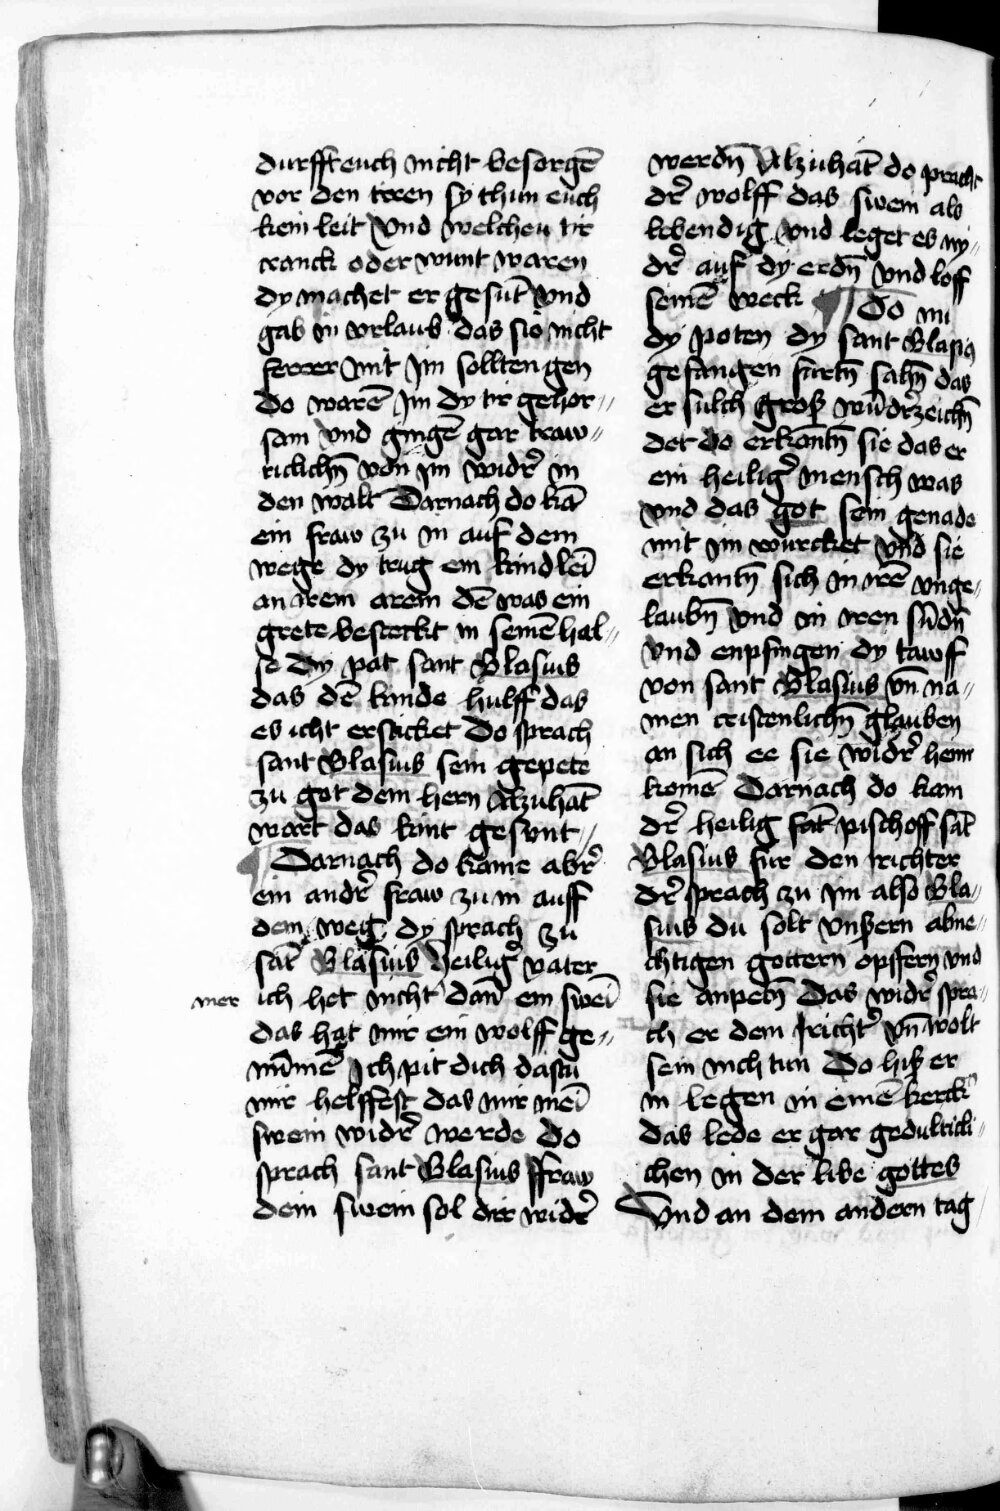 durfft euch nicht besorgē
vor den tiren sy thun euch
kein leit Vnd welcheu tir
cranck oder wunt waren
dy machet er gesūt Vnd
gab in vrlaub das sio nicht
ferrer mit Im sollten gen
do warē Im dy tir gehor„
sam Vnd gingē gar traw„
riclichn̄ von im widr̄ in
den walt Darnach do kā
ein fraw zu in auf dem
wege dy trug ein kind leī
an irem arem dē was ein
grete besteckt in seinē hal„
se Dy pat sant Blasius
das dē kinde hulff das
es icht ersticket Do sprach
sant Blasius sein gepete
zu got dem hern Alzuhāt
wart das kint gesunt„
¶ Darnach do kame abr̄
ein andr̄ fraw zu in auff
dem weg dy sprach zu
sāt Blasius Heiligr̄ vater
mer ich het nicht dañ ein sweī
das hat mir ein wolff ge„
nūmē Ich pit dich dastu
mir helffest das mir meī
swein widr̄ werde Do
sprach sant Blasius ffraw
dein swein sol dir widr̄
werdn̄ Alzuhāt do pracht
dr̄ wolff das swein als
lebendig vnd leget es ny„
dr̄ auf dy erdn̄ Vnd loff
seinē weck ¶ Do nu
dy poten dy sant Blasiū
gefangen furtn̄ sahn̄ das
er sulch groß wūdr̄zeichn̄
det do erkantn̄ sie das er
ein heiligr̄ mensch was
vnd das got sein genade
mit im wurcket Vnd sie
erkantn̄ sich in irē vnge„
laubn̄ Vnd in iren sūdn̄
Vnd enpfingen dy tawff
von sant Blasius vn̄ na„
men cristenlichn̄ glauben
an sich ee sie widr̄ heim
komē Darnach do kam
dr̄ heilig sāt pischoff sāt
Blasius fur den richter
dr̄ sprach zu im also Bla„
sius du solt vnßern abne„
chtigen gottern opffern vnd
sie anpetn̄ Das widr̄ spra„
ch er dem richtr̄ vn̄ wolt
sein nich tun Do hiß er
in legen in einē kerckr̄
das lede er gar gedulticli„
chen in der libe gottes
Vnd an dem andern tag